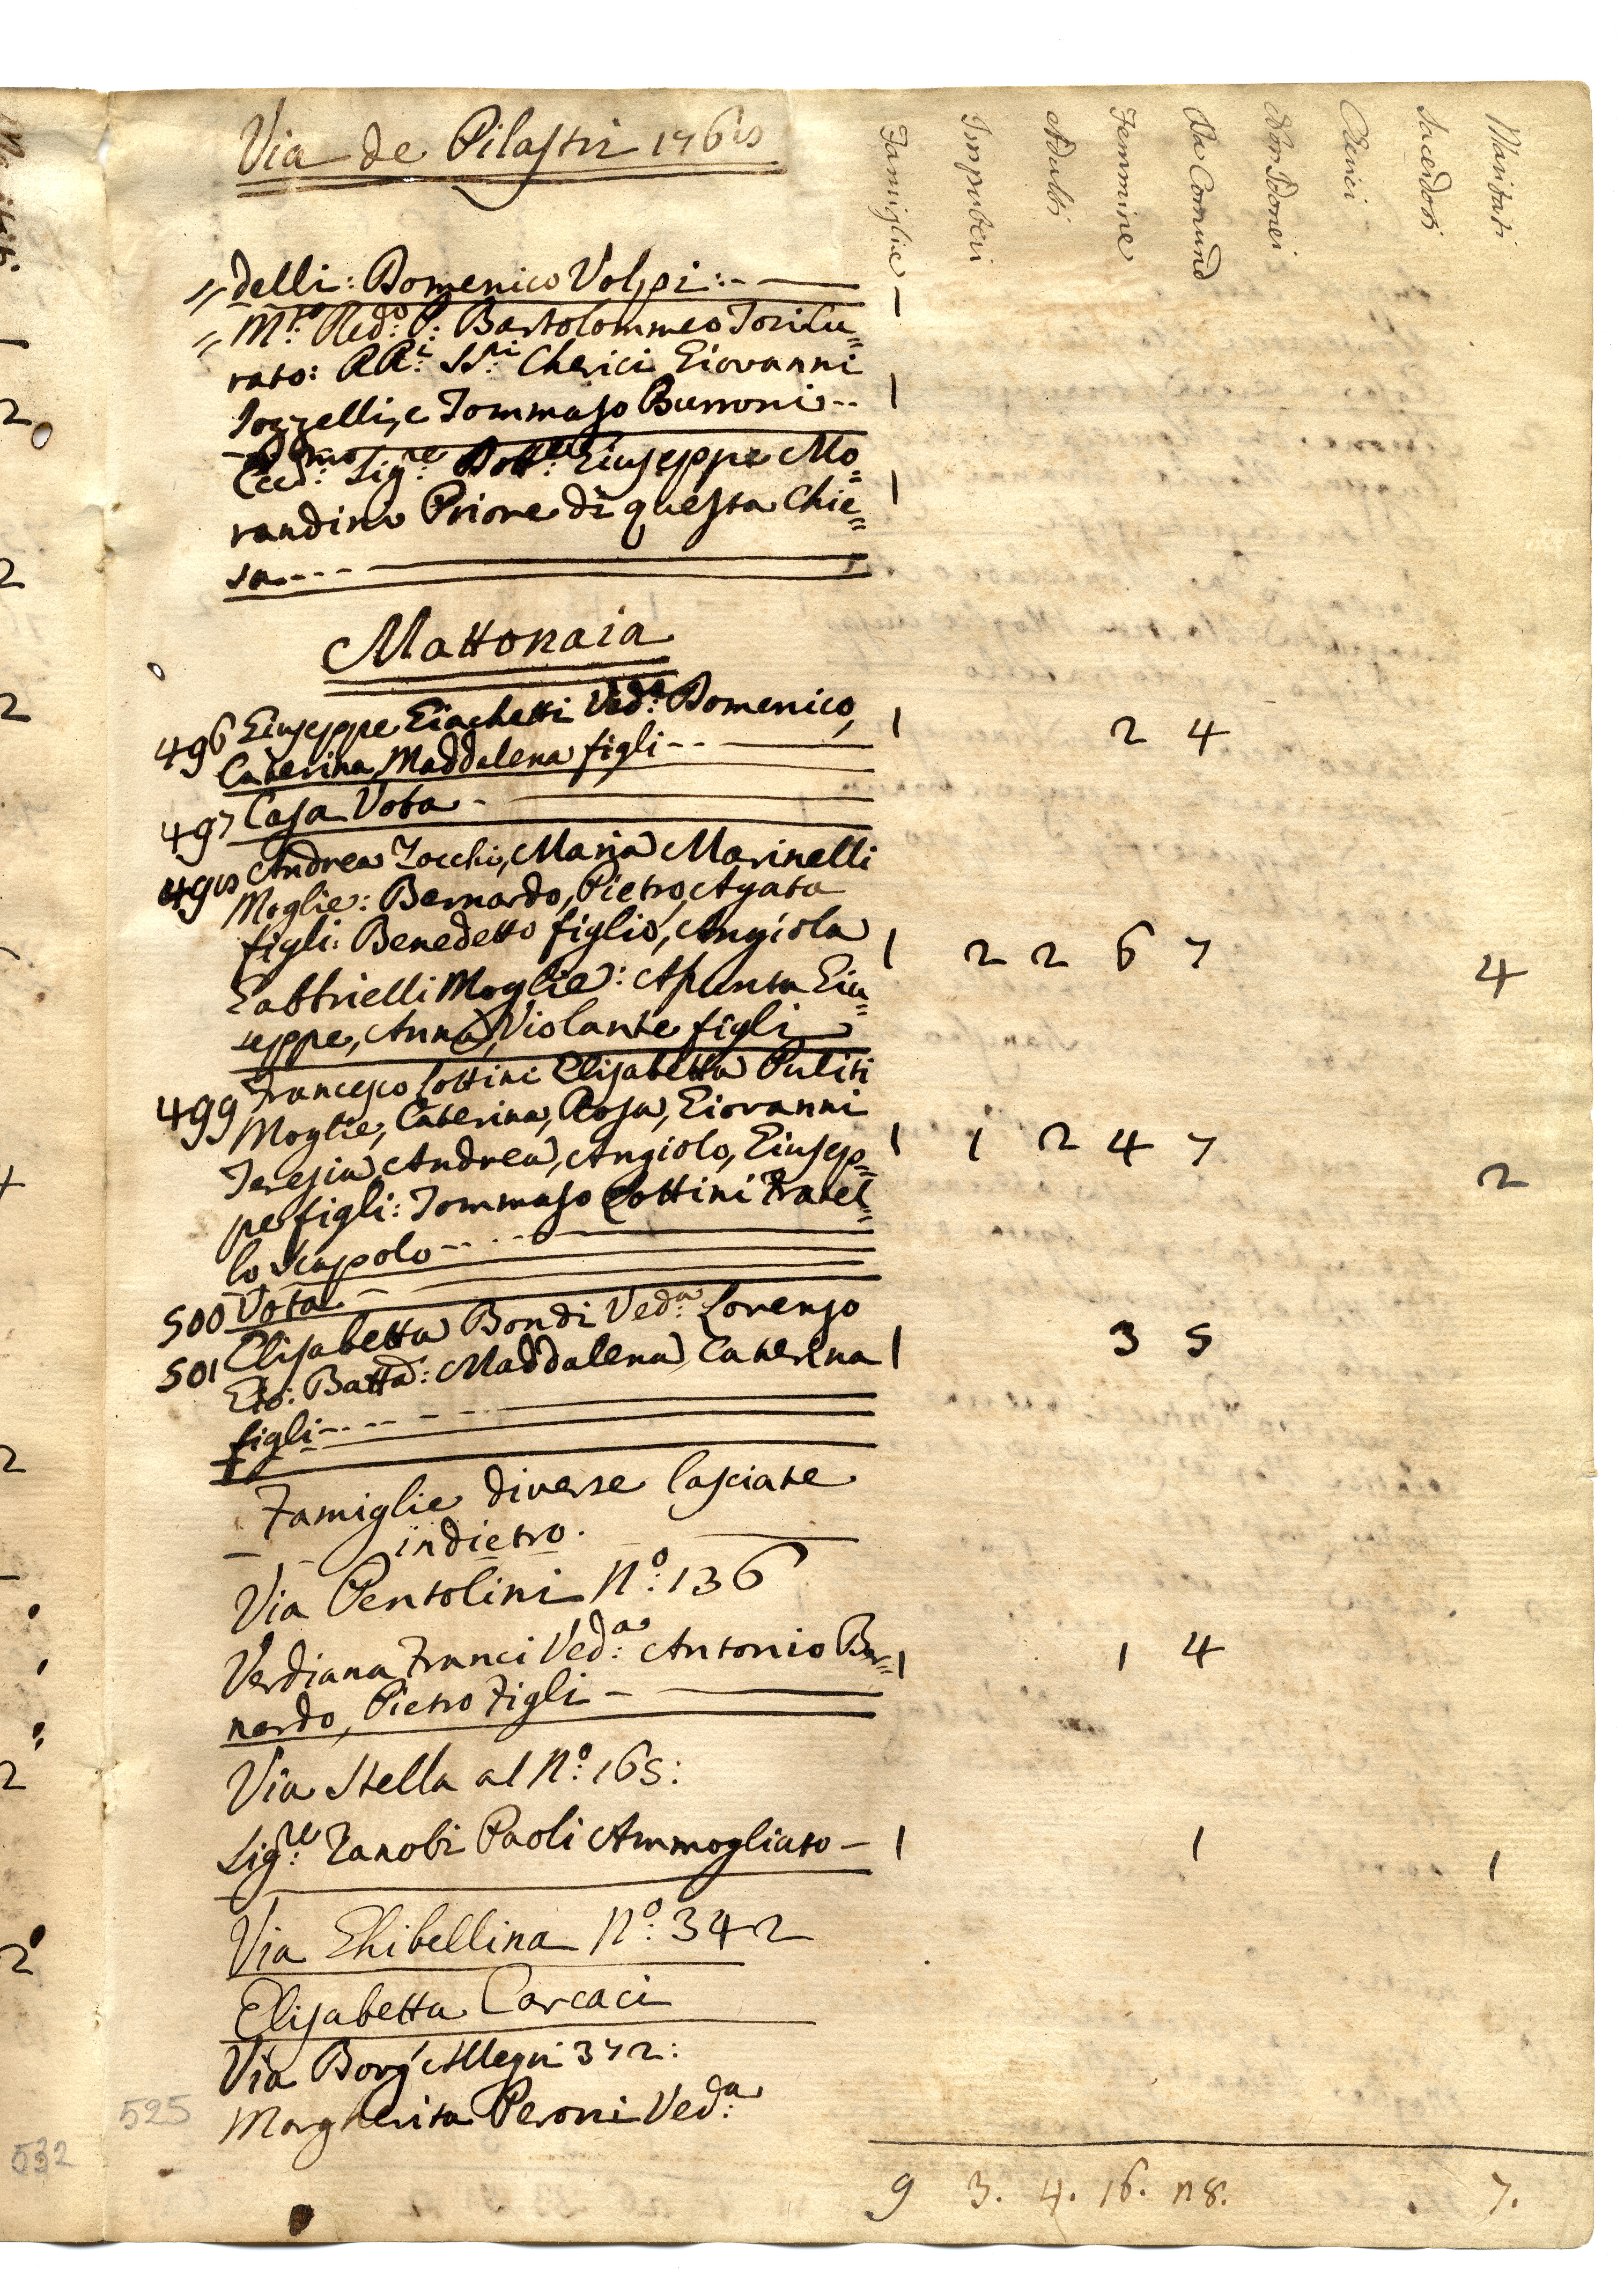 Via de Pilastri 1768
Famiglie
Impuberi
Adulti
Femmine
Da Comun:
Non Idonei
Cherici
Sacerdoti
Maritati
delli: Domenico Volpi:- 1
M.to Red.o P. Bartolommeo
rato: RR.i SS.ri Cherici Giovanni
Pozzelli, e Tommaso Burroni-- 1
Ecc.mo Sig.re Dott.re Giuseppe Mo=
randini Priore di questa Chie= 1
sa----
Mattonaia
496 Giuseppe Giachetti Ved.o Domenico, 1 2 4
Caterina, Maddalena figli--
497 Casa Vota -
498 Andrea Zocchi, Maria Marinelli
Moglie: Bernardo, Pietro, Agata
figli: Benedetto figlio, Angiola 1 2 2 6 7 4
Gabbrielli Moglie: Asunta Giu=
seppe, Anna, Violante figli
499 Francesco Cottini Elisabetta Puliti
Moglie, Caterina, Rosa, Giovanni
Teresia, Andrea, Angiolo, Giusep= 1 1 2 4 7 2
pe figli: Tommaso Cottini Fratel=
lo Scapolo--
500 Vota -
501 Elisabetta Bondi Ved.a Lorenzo
Gio: Batta: Maddalena, Caterina 1 3 5
figli----
Famiglie diverse lasciate
indietro.
Via Pentolini N.o 136
Verdiana Franci Ved.a Antonio Ber= 1 1 4
nardo, Pietro Figli -
Via Stella al N.o 165:
Sig.re Zanobi Paoli Ammogliato - 1 1 1
Via Ghibellina N.o 342
Elisabetta Carcaci
Via Borg'Allegri 372:
Margherita Peroni Ved.a
525
532
9 3. 4. 16. 28. 7.